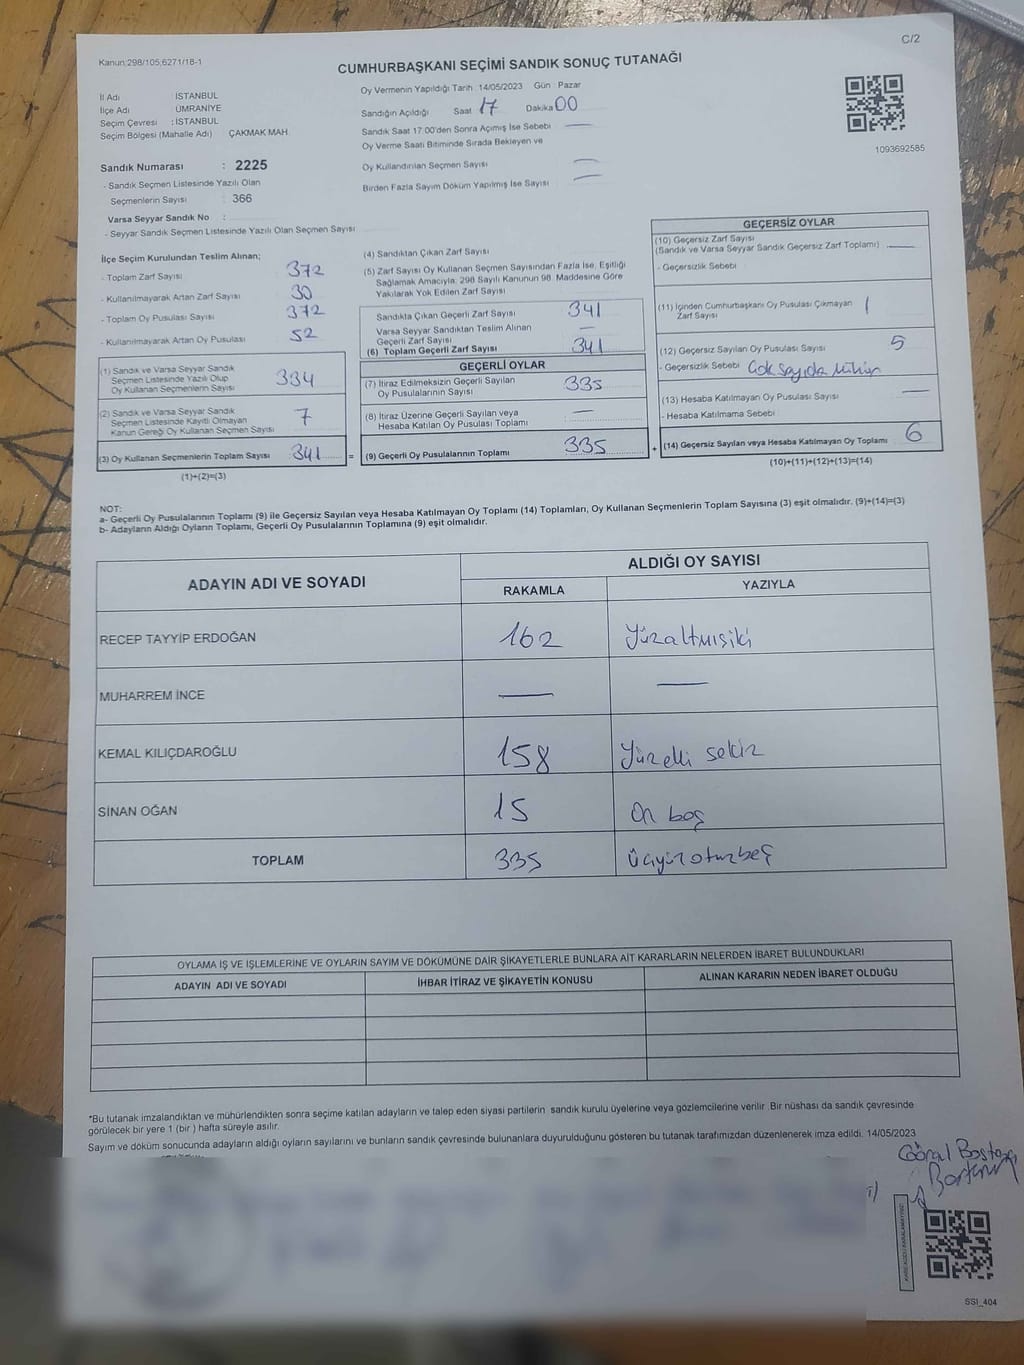 C/2
Kanun:298/105;6271/18-1
CUMHURBAŞKANI SEÇİMİ SANDIK SONUÇ TUTANAĞI
İl Adı : İSTANBUL
İlçe Adı : ÜMRANİYE
Seçim Çevresi : İSTANBUL
Seçim Bölgesi (Mahalle Adı) ÇAKMAK MAH.
Oy Vermenin Yapıldığı Tarih 14/05/2023 Gün Pazar
Sandığın Açıldığı Saat 17 Dakika 00
Sandık Saat 17.00'den Sonra Açımış İse Sebebi —
Oy Verme Saati Bitiminde Sırada Bekleyen ve
Oy Kullandırılan Seçmen Sayısı —
Birden Fazla Sayım Döküm Yapılmış İse Sayısı —
1093692585
Sandık Numarası : 2225
- Sandık Seçmen Listesinde Yazılı Olan
Seçmenlerin Sayısı : 366
Varsa Seyyar Sandık No :
- Seyyar Sandık Seçmen Listesinde Yazılı Olan Seçmen Sayısı
İlçe Seçim Kurulundan Teslim Alınan;
- Toplam Zarf Sayısı 372
- Kullanılmayarak Artan Zarf Sayısı 30
- Toplam Oy Pusulası Sayısı 372
- Kullanılmayarak Artan Oy Pusulası 52
(1) Sandık ve Varsa Seyyar Sandık
Seçmen Listesinde Yazılı Olup
Oy Kullanan Seçmenlerin Sayısı 334
(2) Sandık ve Varsa Seyyar Sandık
Seçmen Listesinde Kayıtlı Olmayan
Kanun Gereği Oy Kullanan Seçmen Sayısı 7
(3) Oy Kullanan Seçmenlerin Toplam Sayısı 341 =
(1)+(2)=(3)
(4) Sandıktan Çıkan Zarf Sayısı
(5) Zarf Sayısı Oy Kullanan Seçmen Sayısından Fazla İse, Eşitliği
Sağlamak Amacıyla; 298 Sayılı Kanunun 98. Maddesine Göre
Yakılarak Yok Edilen Zarf Sayısı
Sandıkta Çıkan Geçerli Zarf Sayısı 341
Varsa Seyyar Sandıktan Teslim Alınan
Geçerli Zarf Sayısı —
(6) Toplam Geçerli Zarf Sayısı 341
GEÇERLİ OYLAR
(7) İtiraz Edilmeksizin Geçerli Sayılan
Oy Pusulalarının Sayısı 335
(8) İtiraz Üzerine Geçerli Sayılan veya
Hesaba Katılan Oy Pusulası Toplamı —
(9) Geçerli Oy Pusulalarının Toplamı 335 +
GEÇERSİZ OYLAR
(10) Geçersiz Zarf Sayısı
(Sandık ve Varsa Seyyar Sandık Geçersiz Zarf Toplamı) —
- Geçersizlik Sebebi
(11) İçinden Cumhurbaşkanı Oy Pusulası Çıkmayan
Zarf Sayısı 1
(12) Geçersiz Sayılan Oy Pusulası Sayısı 5
- Geçersizlik Sebebi Çok sayıda mühür
(13) Hesaba Katılmayan Oy Pusulası Sayısı —
- Hesaba Katılmama Sebebi
(14) Geçersiz Sayılan veya Hesaba Katılmayan Oy Toplamı 6
(10)+(11)+(12)+(13)=(14)
NOT:
a- Geçerli Oy Pusulalarının Toplamı (9) ile Geçersiz Sayılan veya Hesaba Katılmayan Oy Toplamı (14) Toplamları, Oy Kullanan Seçmenlerin Toplam Sayısına (3) eşit olmalıdır. (9)+(14)=(3)
b- Adayların Aldığı Oyların Toplamı, Geçerli Oy Pusulalarının Toplamına (9) eşit olmalıdır.
ADAYIN ADI VE SOYADI
ALDIĞI OY SAYISI
RAKAMLA YAZIYLA
RECEP TAYYİP ERDOĞAN 162 Yüzaltmışiki
MUHARREM İNCE — —
KEMAL KILIÇDAROĞLU 158 Yüzelli sekiz
SİNAN OĞAN 15 On beş
TOPLAM 335 Üçyüzotuzbeş
OYLAMA İŞ VE İŞLEMLERİNE VE OYLARIN SAYIM VE DÖKÜMÜNE DAİR ŞİKAYETLERLE BUNLARA AİT KARARLARIN NELERDEN İBARET BULUNDUKLARI
ADAYIN ADI VE SOYADI İHBAR İTİRAZ VE ŞİKAYETİN KONUSU ALINAN KARARIN NEDEN İBARET OLDUĞU
*Bu tutanak imzalandıktan ve mühürlendikten sonra seçime katılan adayların ve talep eden siyasi partilerin sandık kurulu üyelerine veya gözlemcilerine verilir. Bir nüshası da sandık çevresinde
görülecek bir yere 1 (bir ) hafta süreyle asılır.
Sayım ve döküm sonucunda adayların aldığı oyların sayılarını ve bunların sandık çevresinde bulunanlara duyurulduğunu gösteren bu tutanak tarafımızdan düzenlenerek imza edildi. 14/05/2023
SSI_404